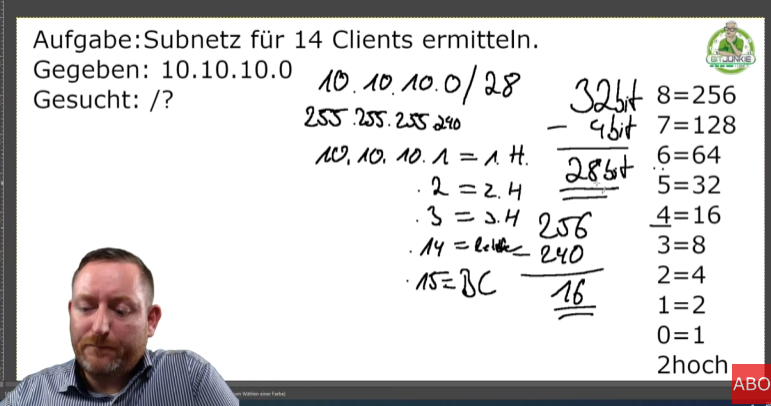 Aufgabe:Subnetz für 14 Clients ermitteln.
Gegeben: 10.10.10.0
Gesucht: /?
10.10.10.0/28
255.255.255.240
10.10.10.1 = 1.H.
.2 = 2.H
.3 = 3.H
.14 =
.15 = BC
32bit
- 4bit
28bit
256
- 240
16
8=256
7=128
6=64
5=32
4=16
3=8
2=4
1=2
0=1
2hoch
BITJUNKIE
ABO